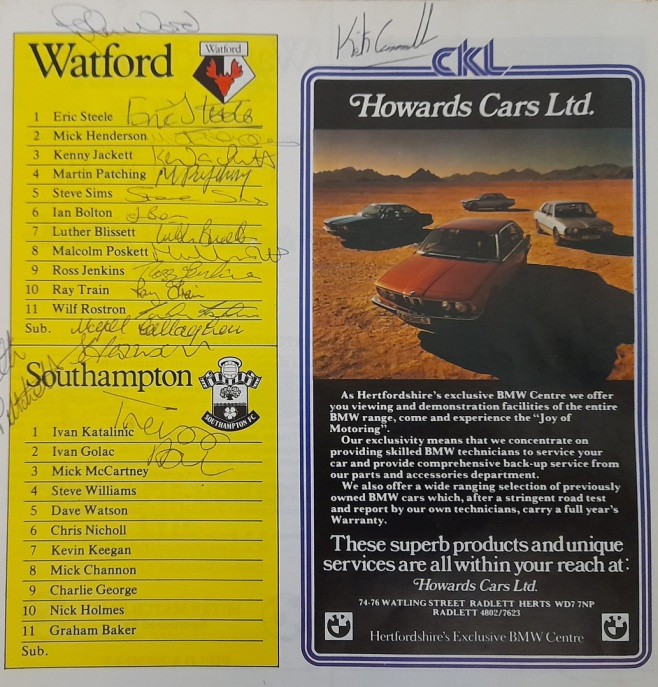 Watford
Watford
1 Eric Steele Eric Steele
2 Mick Henderson
3 Kenny Jackett
4 Martin Patching
5 Steve Sims Steve Sims
6 Ian Bolton
7 Luther Blissett
8 Malcolm Poskett
9 Ross Jenkins Ross Jenkins
10 Ray Train Ray Train
11 Wilf Rostron
Sub.
Southampton
SOUTHAMPTON FC
1 Ivan Katalinic
2 Ivan Golac
3 Mick McCartney
4 Steve Williams
5 Dave Watson
6 Chris Nicholl
7 Kevin Keegan
8 Mick Channon
9 Charlie George
10 Nick Holmes
11 Graham Baker
Sub.
CKL
Howards Cars Ltd.
As Hertfordshire's exclusive BMW Centre we offer
you viewing and demonstration facilities of the entire
BMW range, come and experience the "Joy of
Motoring".
Our exclusivity means that we concentrate on
providing skilled BMW technicians to service your
car and provide comprehensive back-up service from
our parts and accessories department.
We also offer a wide ranging selection of previously
owned BMW cars which, after a stringent road test
and report by our own technicians, carry a full year's
Warranty.
These superb products and unique
services are all within your reach at:
Howards Cars Ltd.
74-76 WATLING STREET RADLETT HERTS WD7 7NP
RADLETT 4802/7623
Hertfordshire's Exclusive BMW Centre